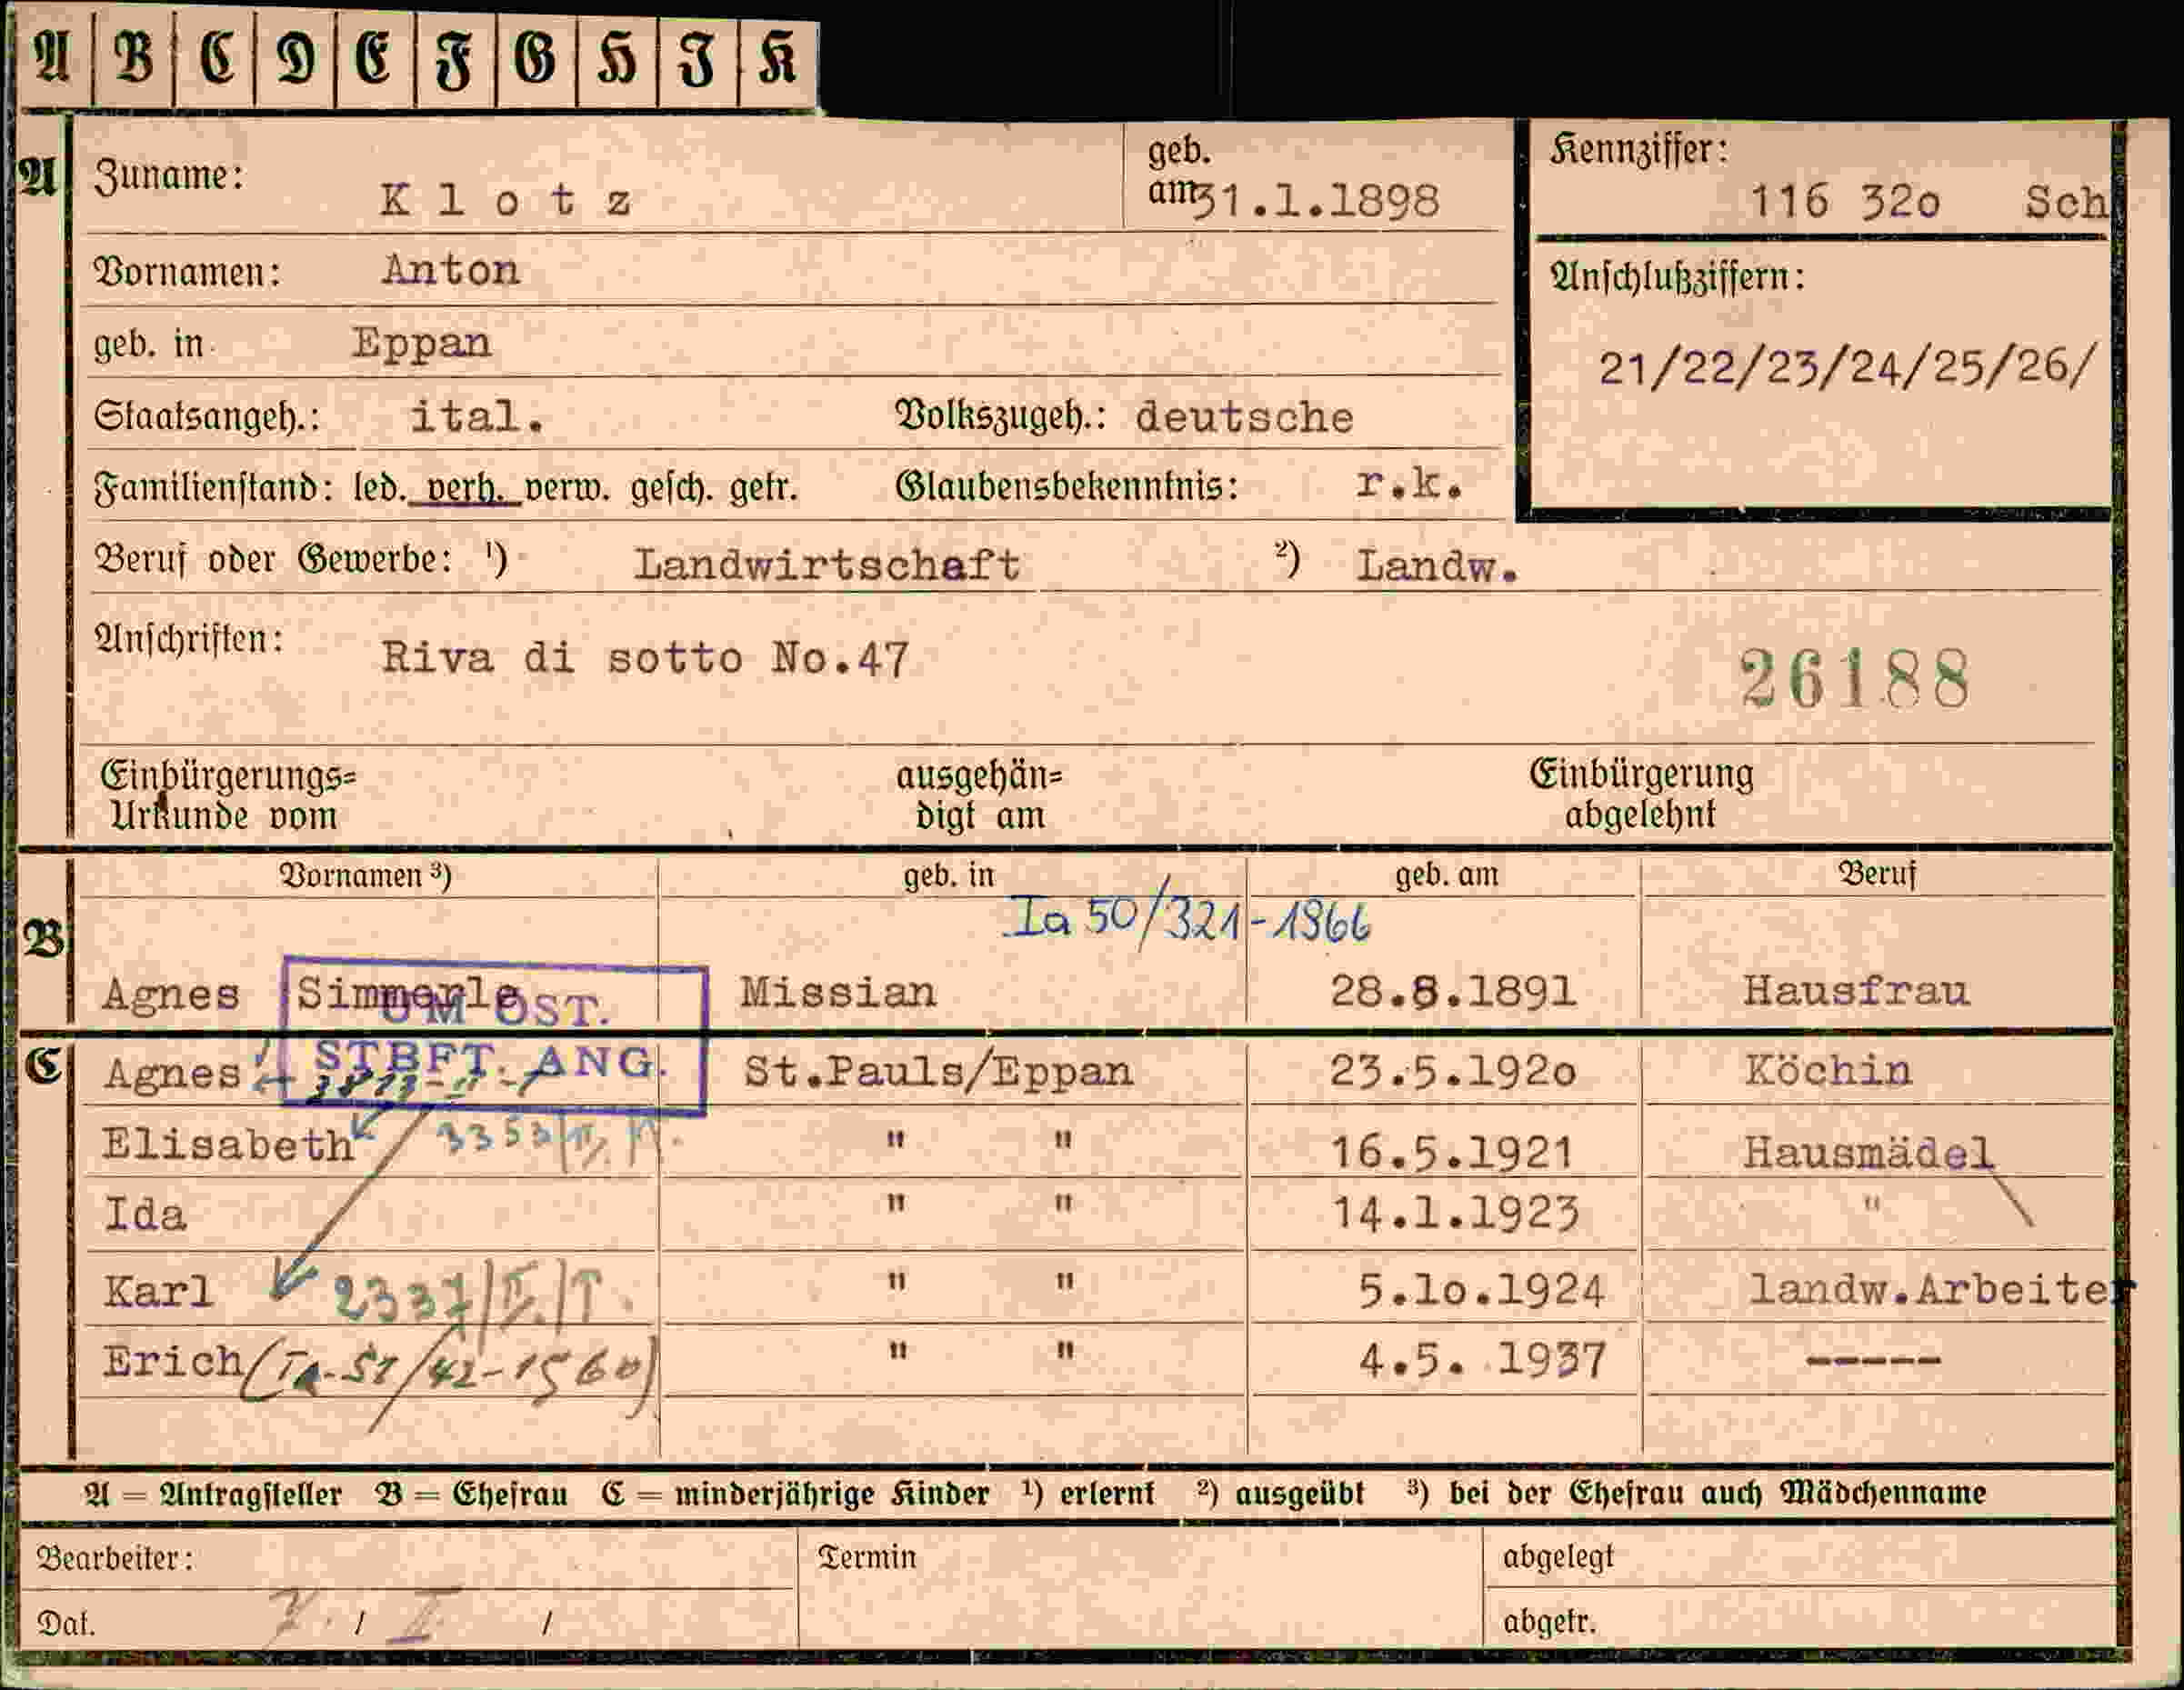 A B C D E F G H I K
A Zuname: Klotz geb. am 31.1.1898 Kennziffer: 116 32o Sch
Vornamen: Anton Anschlußziffern:
geb. in Eppan 21/22/23/24/25/26/
Staatsangeh.: ital. Volkszugeh.: deutsche
Familienstand: led. verh. verw. gesch. getr. Glaubensbekenntnis: r.k.
Beruf oder Gewerbe: ¹) Landwirtschaft ²) Landw.
Anschriften: Riva di sotto No.47 26188
Einbürgerungs=
Urkunde vom
ausgehän=
digt am
Einbürgerung
abgelehnt
Vornamen ³) geb. in geb. am Beruf
Ia 50/321-1966
B Agnes Simmerle Missian 28.8.1891 Hausfrau
UM OST.
STBFT. ANG.
C Agnes St.Pauls/Eppan 23.5.192o Köchin
Elisabeth " " 16.5.1921 Hausmädel
Ida " " 14.1.1923 "
Karl " " 5.1o.1924 landw.Arbeiter
Erich (Ia-51/42-1560) " " 4.5. 1937 -----
A = Antragsteller B = Ehefrau C = minderjährige Kinder ¹) erlernt ²) ausgeübt ³) bei der Ehefrau auch Mädchenname
Bearbeiter: Termin abgelegt
Dat. / / abgetr.